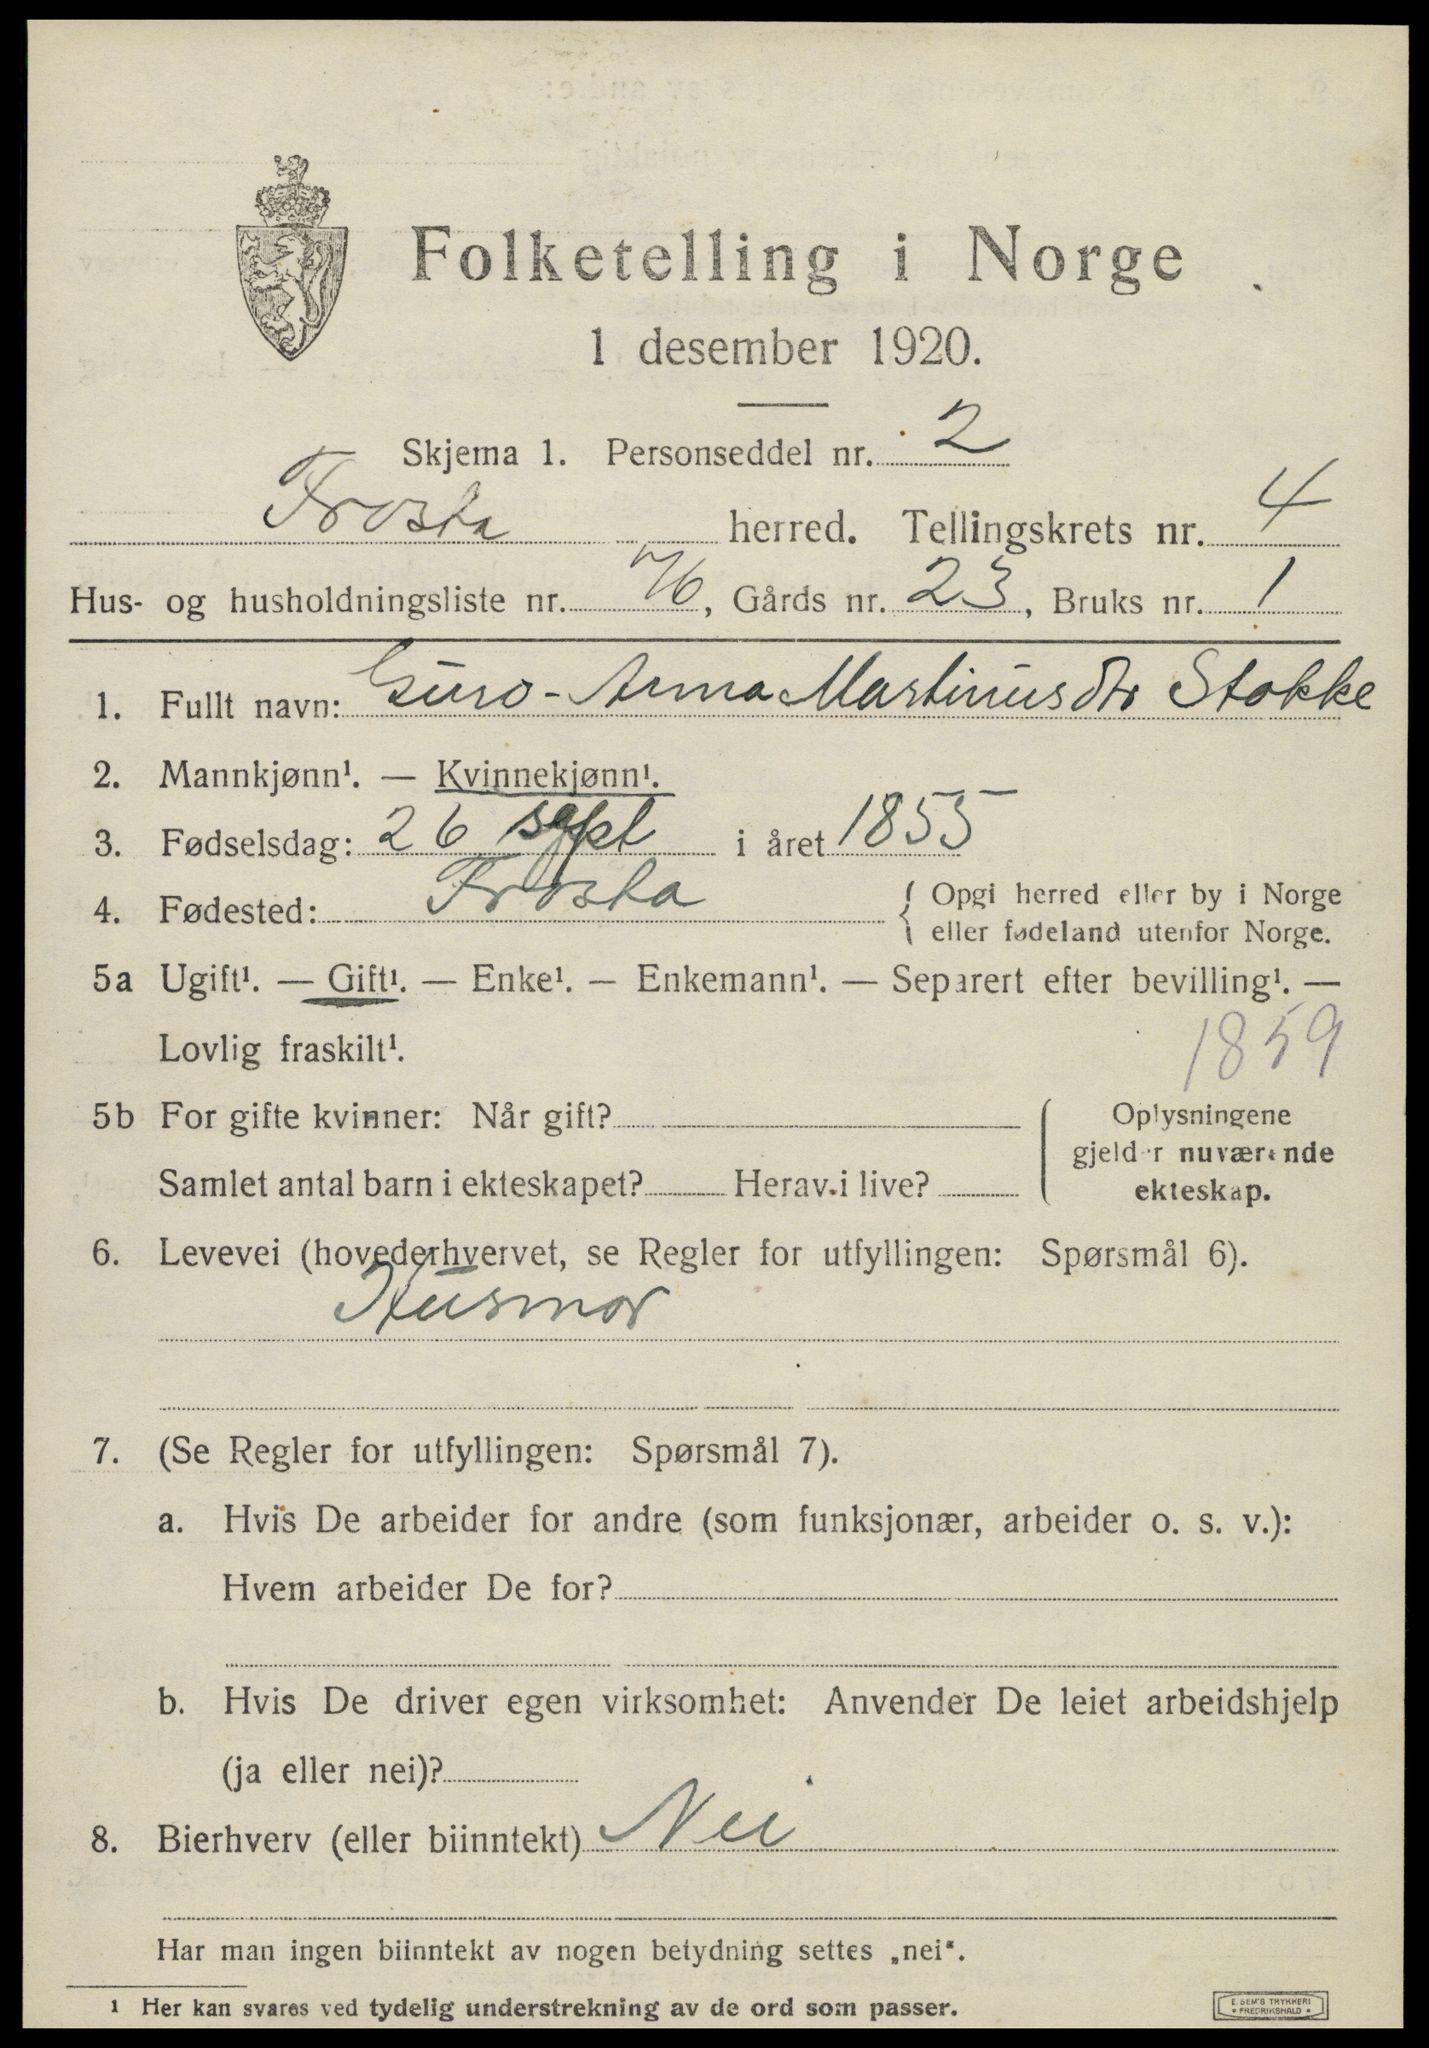 Folketelling i Norge
1 desember 1920.
Skjema 1. Personseddel nr. 2
Frosta herred. Tellingskrets nr. 4
Hus- og husholdningsliste nr. 76, Gårds nr. 23, Bruks nr. 1
1. Fullt navn: Guro-Anna Martinusdtr Stokke
2. Mannkjønn¹. — Kvinnekjønn¹.
3. Fødselsdag: 26 sept i året 1855
4. Fødested: Frosta { Opgi herred eller by i Norge
eller fødeland utenfor Norge.
5a Ugift¹. — Gift¹. — Enke¹. — Enkemann¹. — Separert efter bevilling¹. —
Lovlig fraskilt¹. 1859
5b For gifte kvinner: Når gift? Oplysningene
gjelder nuværende
Samlet antal barn i ekteskapet? Herav i live? ekteskap.
6. Levevei (hovederhvervet, se Regler for utfyllingen: Spørsmål 6).
Husmor
7. (Se Regler for utfyllingen: Spørsmål 7).
a. Hvis De arbeider for andre (som funksjonær, arbeider o. s. v.):
Hvem arbeider De for?
b. Hvis De driver egen virksomhet: Anvender De leiet arbeidshjelp
(ja eller nei)?
8. Bierhverv (eller biinntekt) Nei
Har man ingen biinntekt av nogen betydning settes „nei“.
¹ Her kan svares ved tydelig understrekning av de ord som passer.
E. SEM'S TRYKKERI
• FREDRIKSHALD •